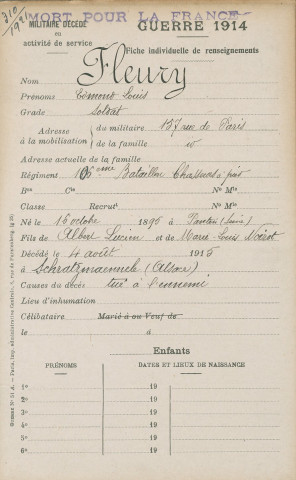 310
1921
MORT POUR LA FRANCE
MILITAIRE DÉCÉDÉ
en
activité de service
GUERRE 1914
Fiche individuelle de renseignements
Nom Fleury
Prénoms Edmond Louis
Grade Soldat
Adresse à la mobilisation
du militaire 157 rue de Paris
de la famille id
Adresse actuelle de la famille
Régiment Bataillon Chasseurs à pied
Bon Cie No Mle
Classe Recrutt No Mle
Né le 16 octobre 1895 à Pantin (Seine)
Fils de Albert Lucien et de Marie-Louis
Décédé le 4 août 1915
à (Alsace)
Causes du décès tué à l'ennemi
Lieu d'inhumation
Célibataire Marié à ou Veuf de
le à
Enfants
PRÉNOMS DATES ET LIEUX DE NAISSANCE
1o 19
2o 19
3o 19
4o 19
5o 19
6o 19